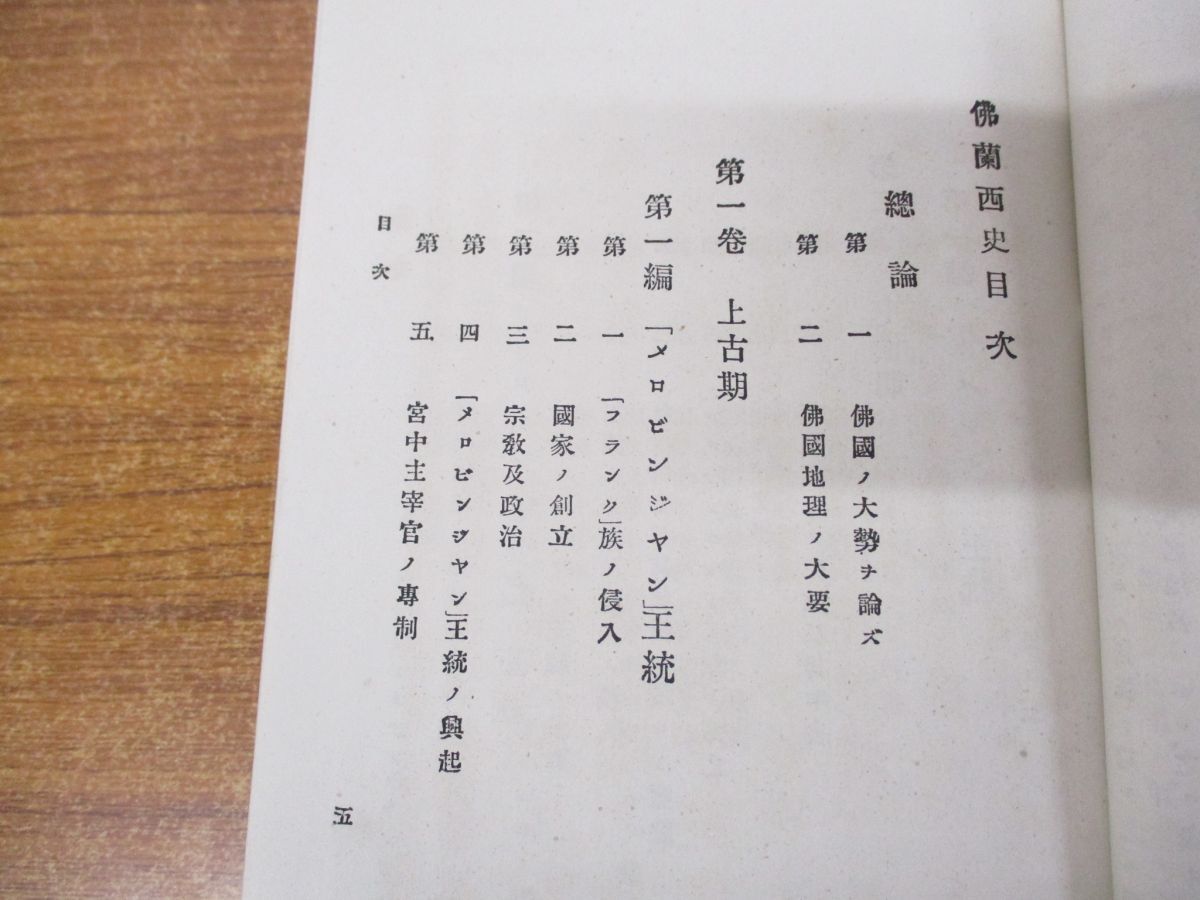 佛蘭西史目次
總論
第一 佛國ノ大勢ヲ論ズ
第二 佛國地理ノ大要
第一卷 上古期
第一編 「メロビンジヤン」王統
第一 「フランク」族ノ侵入
第二 國家ノ創立
第三 宗敎及政治
第四 「メロビンジヤン」王統ノ興起
第五 宮中主宰官ノ專制
目次
五